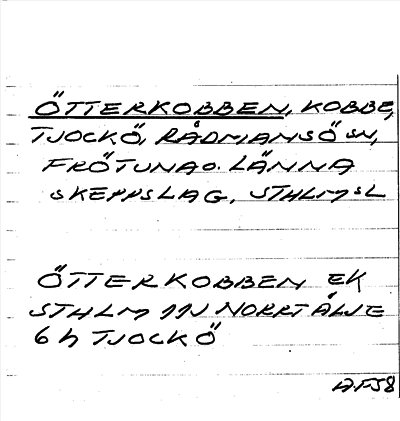 ÖTTERKOBBEN, KOBBE,
TJOCKÖ, RÅDMANSÖ SN,
FRÖTUNA O. LÄNNA
SKEPPSLAG, STHLMSL
ÖTTERKOBBEN EK
STHLM 11J NORRTÄLJE
6 h TJOCKÖ
AF58